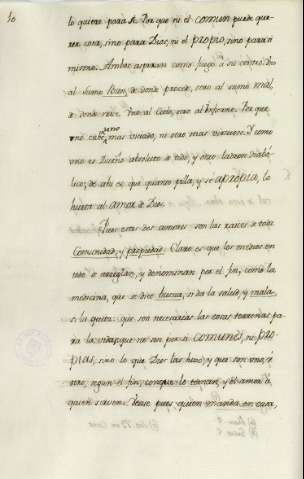 10
lo quiere para sí. Por que ni el comun puede que-
rer cosa, sino para Dios, ni el propio, sino para si
mismo. Ambos aspiran como fuego à su centro. Uno
al sumo Bien, de donde procede, otro al sumo mal,
a donde Uno al Cielo, otro al Infierno. Por que
no cabe uno mas viciado, ni otro mas virtuoso. Y como
uno es Dueño absoluto de todo, y otro ladron Diabó-
lico; de ahi es que quanto pilla, y se apropia, lo
hurta al amor de Dios.
Pues estos dos amores son las raices de toda
Comunidad, y propiedad. Claro es que los medios en
todo se arreglan, y denominan por el fin, como la
medicina, que se dice buena, si da la salud, y mala,
si la quita: que son necesarias las cosas terrenas pa-
ra la vida, que no son por si comunes, ni pro-
pias, sino lo que Dios las hizo, y que son uno, ù
otro, segun el fin, conque se toman, y el ama à
quien sirven. Vease pues quien manda en casa,